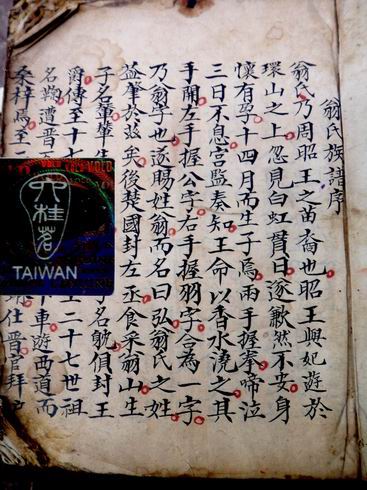 翁氏族譜序
翁氏乃周昭王之苗裔也昭王與妃遊於
環山之上忽見白虹貫日遂歉然不安身
懷有孕十四月而生子焉兩手握拳啼泣
三日不息宮監奏知王命以香水澆之其
手開左手握公字右手握羽字合為一字
乃翁字也遂賜姓翁而名曰弘翁氏之姓
益肇於茲矣後楚國封左丞食采翁山生
子名董董生 名 偵封王
爵傳至十七 王二十七世祖
名 遭晉 車遊西道而
桑梓焉至二 仕晉官拜
六桂茗
TAIWAN